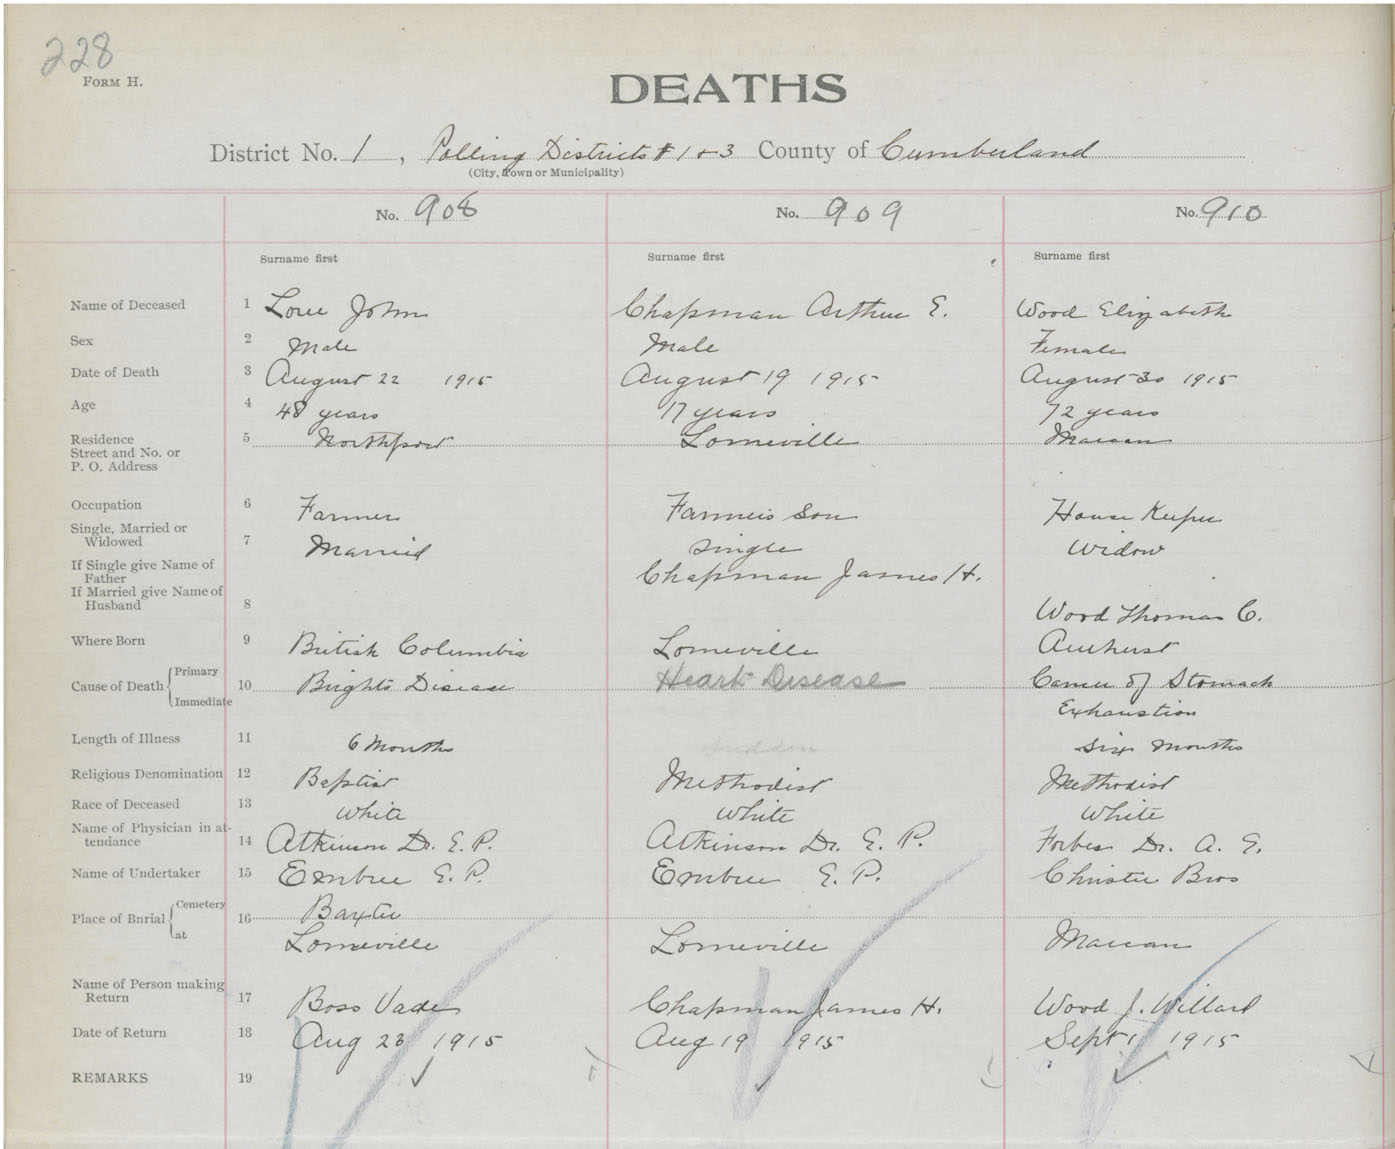 228
FORM H.
DEATHS
District No. 1, Polling Districts # 1 + 3 County of Cumberland
(City, Town or Municipality)
No. 908 No. 909 No. 910
Surname first Surname first Surname first
Name of Deceased 1 Lowe John Chapman Arthur E. Wood Elizabeth
Sex 2 Male Male Female
Date of Death 3 August 22 1915 August 19 1915 August 30 1915
Age 4 48 years 17 years 72 years
Residence 5 Northport Lorneville Maccan
Street and No. or
P. O. Address
Occupation 6 Farmer Farmers Son House Keeper
Single, Married or
Widowed 7 Married Single Widow
If Single give Name of
Father Chapman James H.
If Married give Name of
Husband 8 Wood Thomas C.
Where Born 9 British Columbia Lorneville Amherst
Cause of Death Primary 10 Brights Disease Heart Disease Cancer of Stomach
Immediate Exhaustion
Length of Illness 11 6 Months sudden Six Months
Religious Denomination 12 Baptist Methodist Methodist
Race of Deceased 13 White White White
Name of Physician in at-
tendance 14 Atkinson Dr. E. P. Atkinson Dr. E. P. Forbes Dr. A. E.
Name of Undertaker 15 Embree E. P. Embree E. P. Christie Bros
Place of Burial Cemetery 16 Baxter
at Lorneville Lorneville Maccan
Name of Person making
Return 17 Boss Vade Chapman James H. Wood J. Willard
Date of Return 18 Aug 23 1915 Aug 19 1915 Sept 1 1915
REMARKS 19